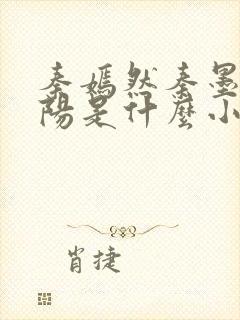 秦嫣然秦墨
陽是什麼小
肖捷